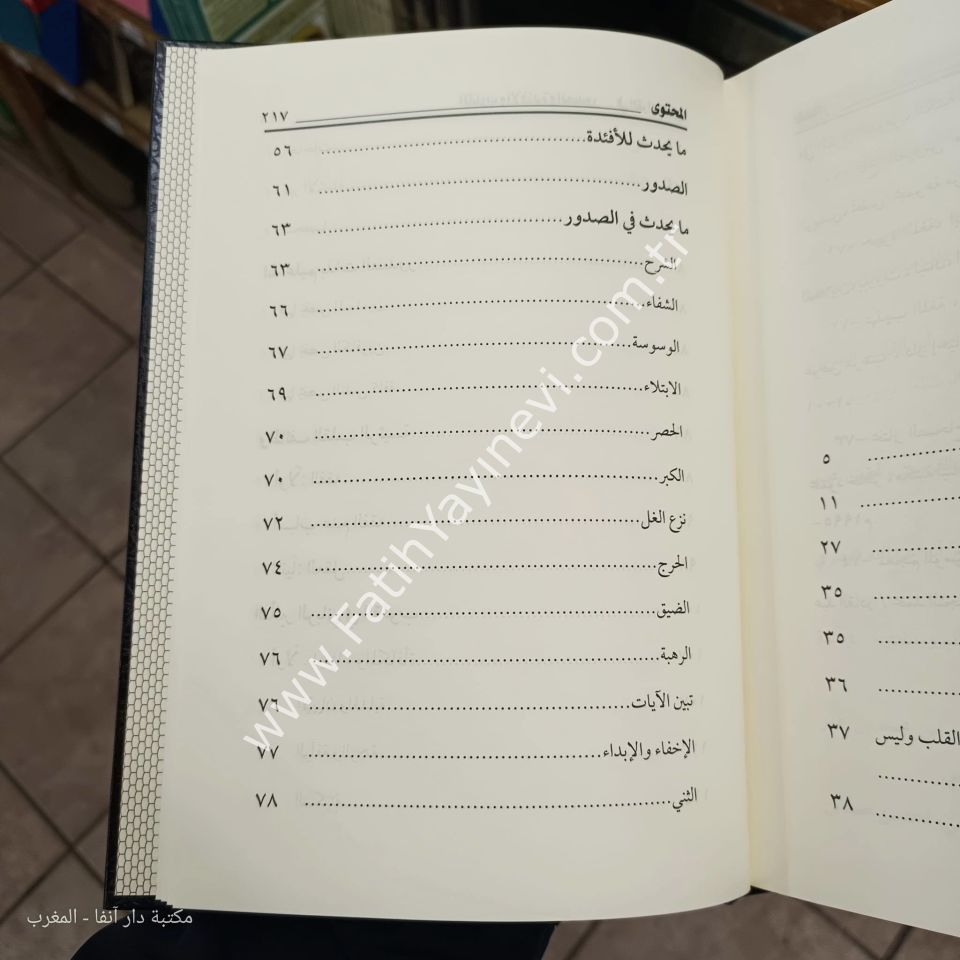 المحتوى ٢١٧
ما يحدث للأفئدة ٥٦
الصدور ٦١
ما يحدث في الصدور ٦٣
الشرح ٦٣
الشفاء ٦٦
الوسوسة ٦٧
الابتلاء ٦٩
الحصر ٧٠
الكبر ٧٠
نزع الغل ٧٢
الحرج ٧٤
الضيق ٧٥
الرهبة ٧٦
تبين الآيات ٧٦
الإخفاء والإبداء ٧٧
الثني ٧٨
٥
١١
٢٧
٣٥
٣٥
٣٦
القلب وليس ٣٧
٣٨
www.FatihYayinevi.com.tr
مكتبة دار آنفا - المغرب